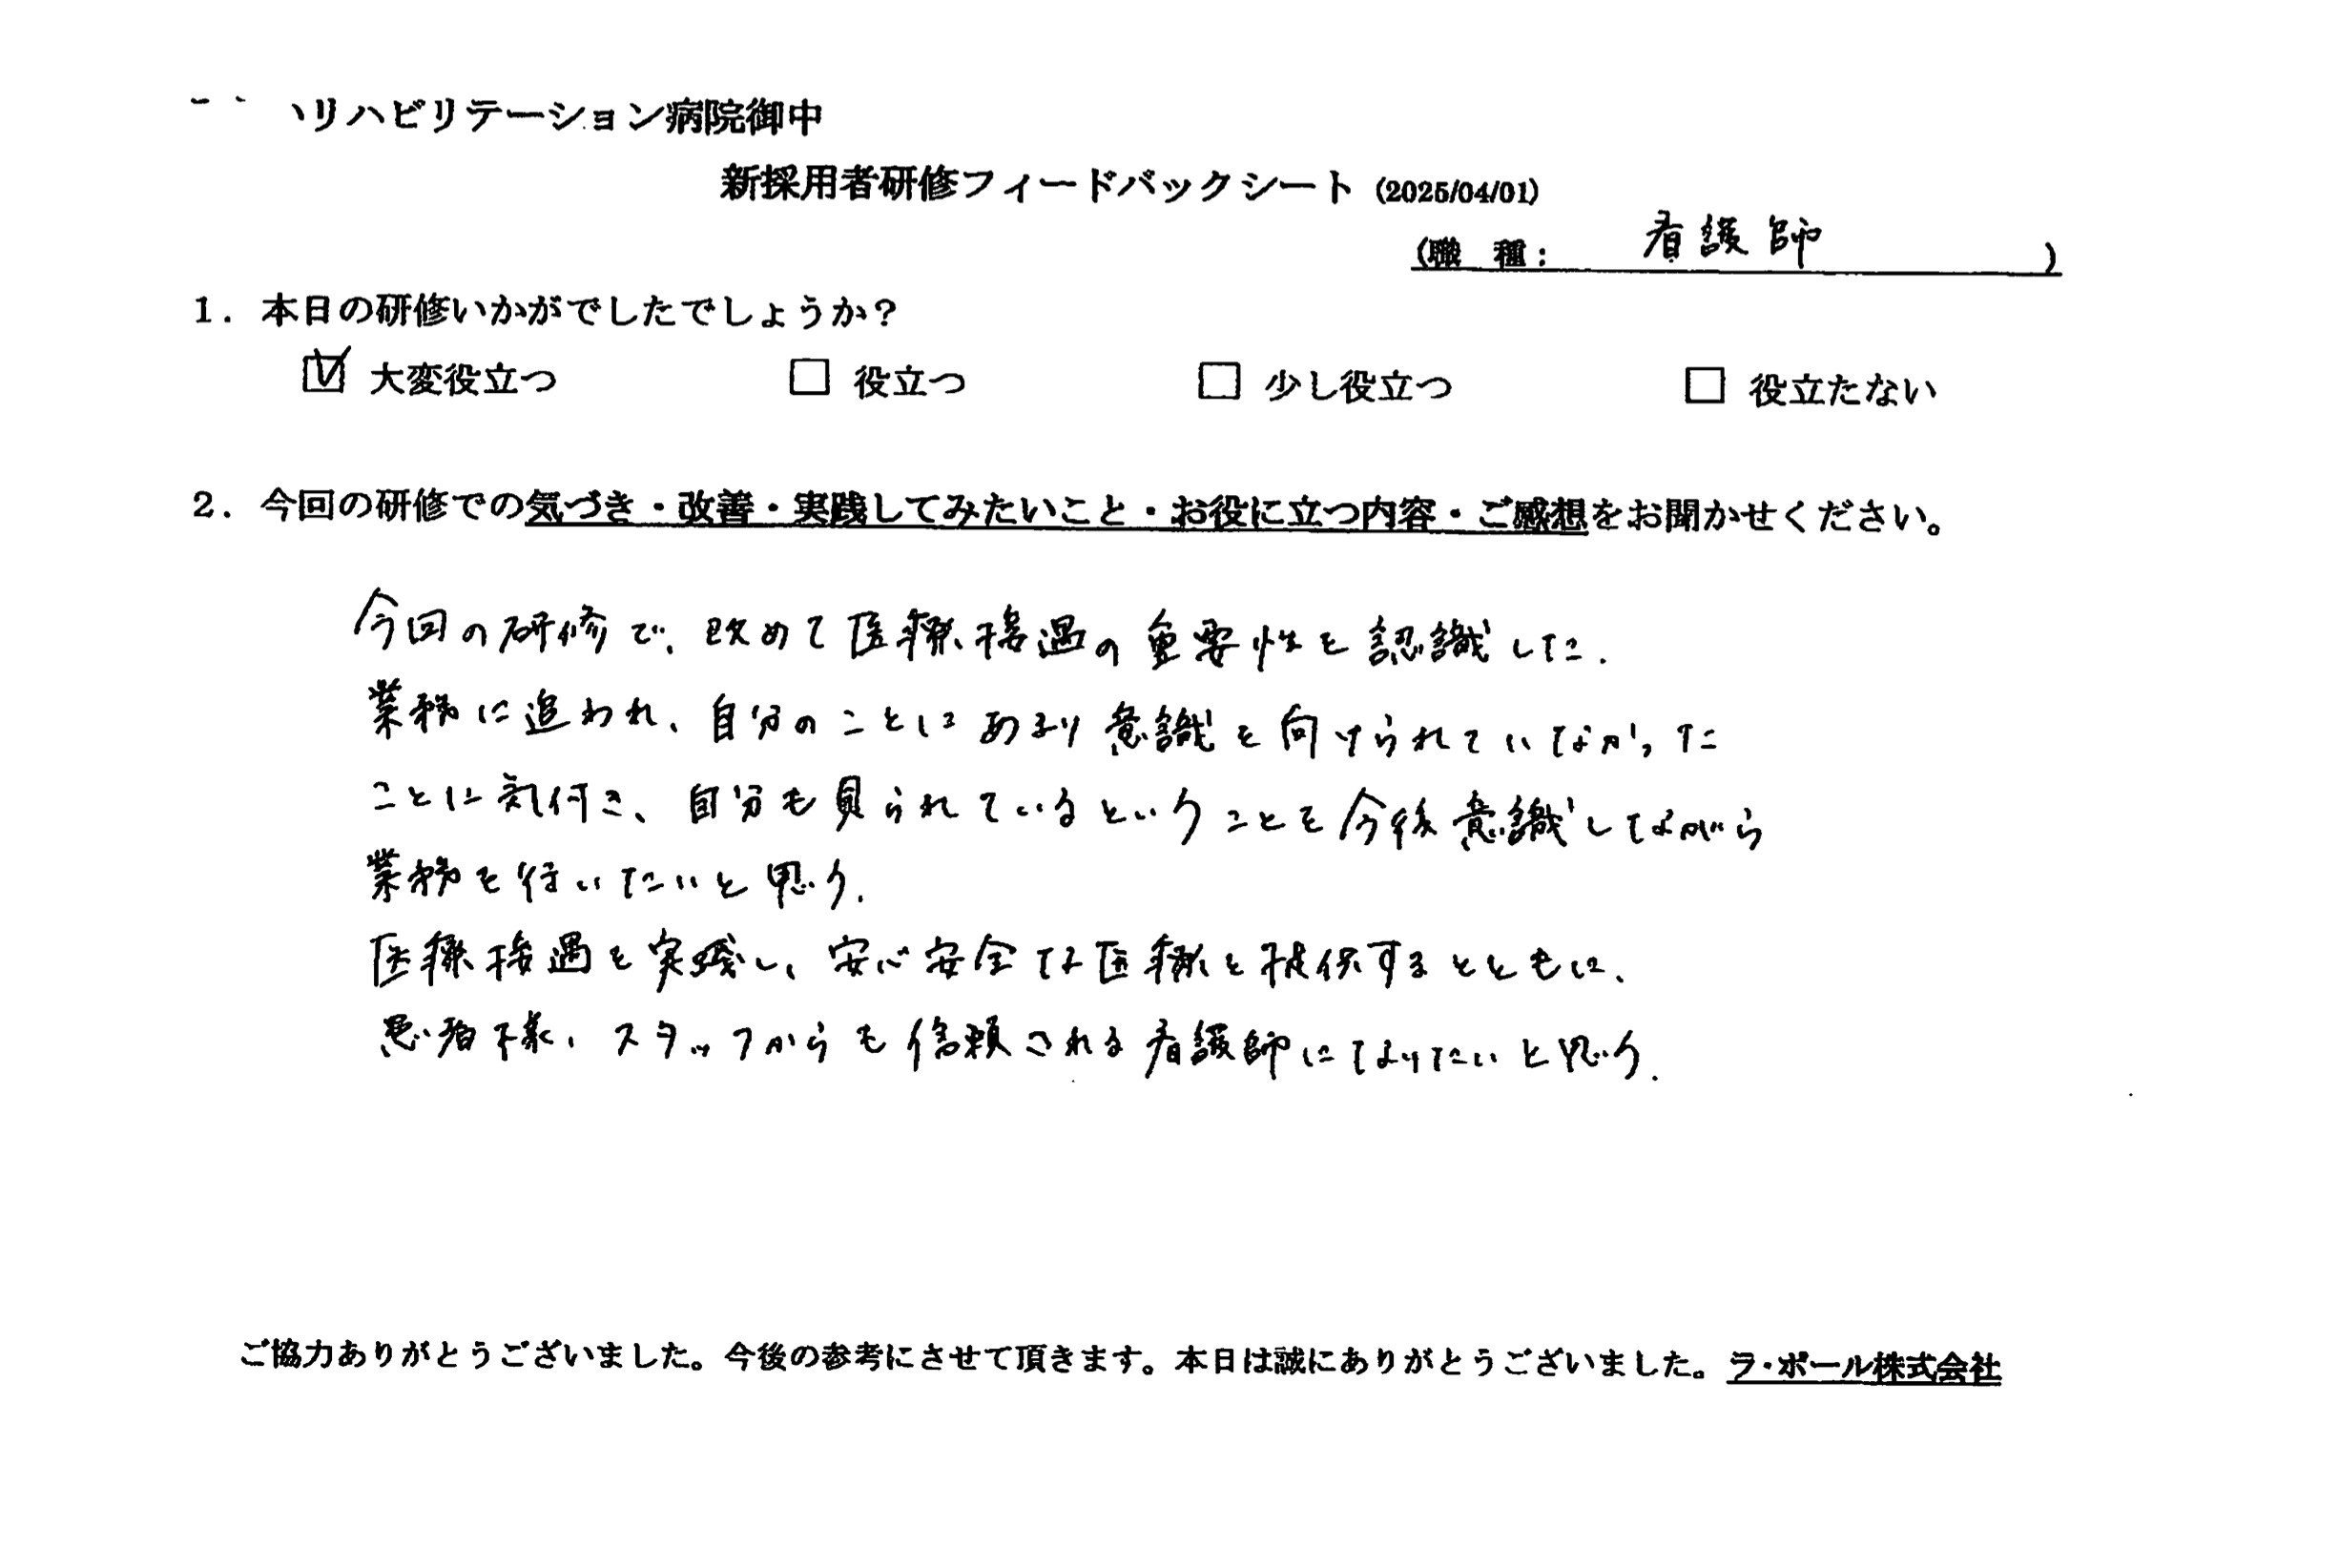 リハビリテーション病院御中
新採用者研修フィードバックシート (2025/04/01)
(職 種: 看護師 )
1. 本日の研修いかがでしたでしょうか?
☑ 大変役立つ □ 役立つ □ 少し役立つ □ 役立たない
2. 今回の研修での気づき・改善・実践してみたいこと・お役に立つ内容・ご感想をお聞かせください。
今回の研修で、改めて医療接遇の重要性を認識した.
業務に追われ、自分のことにあまり意識を向けられていなかった
ことに気付き、自分も見られているということを今後意識しながら
業務を行いたいと思う.
医療接遇を実践し、安心安全な医療を提供するとともに、
患者様、スタッフからも信頼される看護師になりたいと思う.
ご協力ありがとうございました。今後の参考にさせて頂きます。本日は誠にありがとうございました。ラ・ポール株式会社